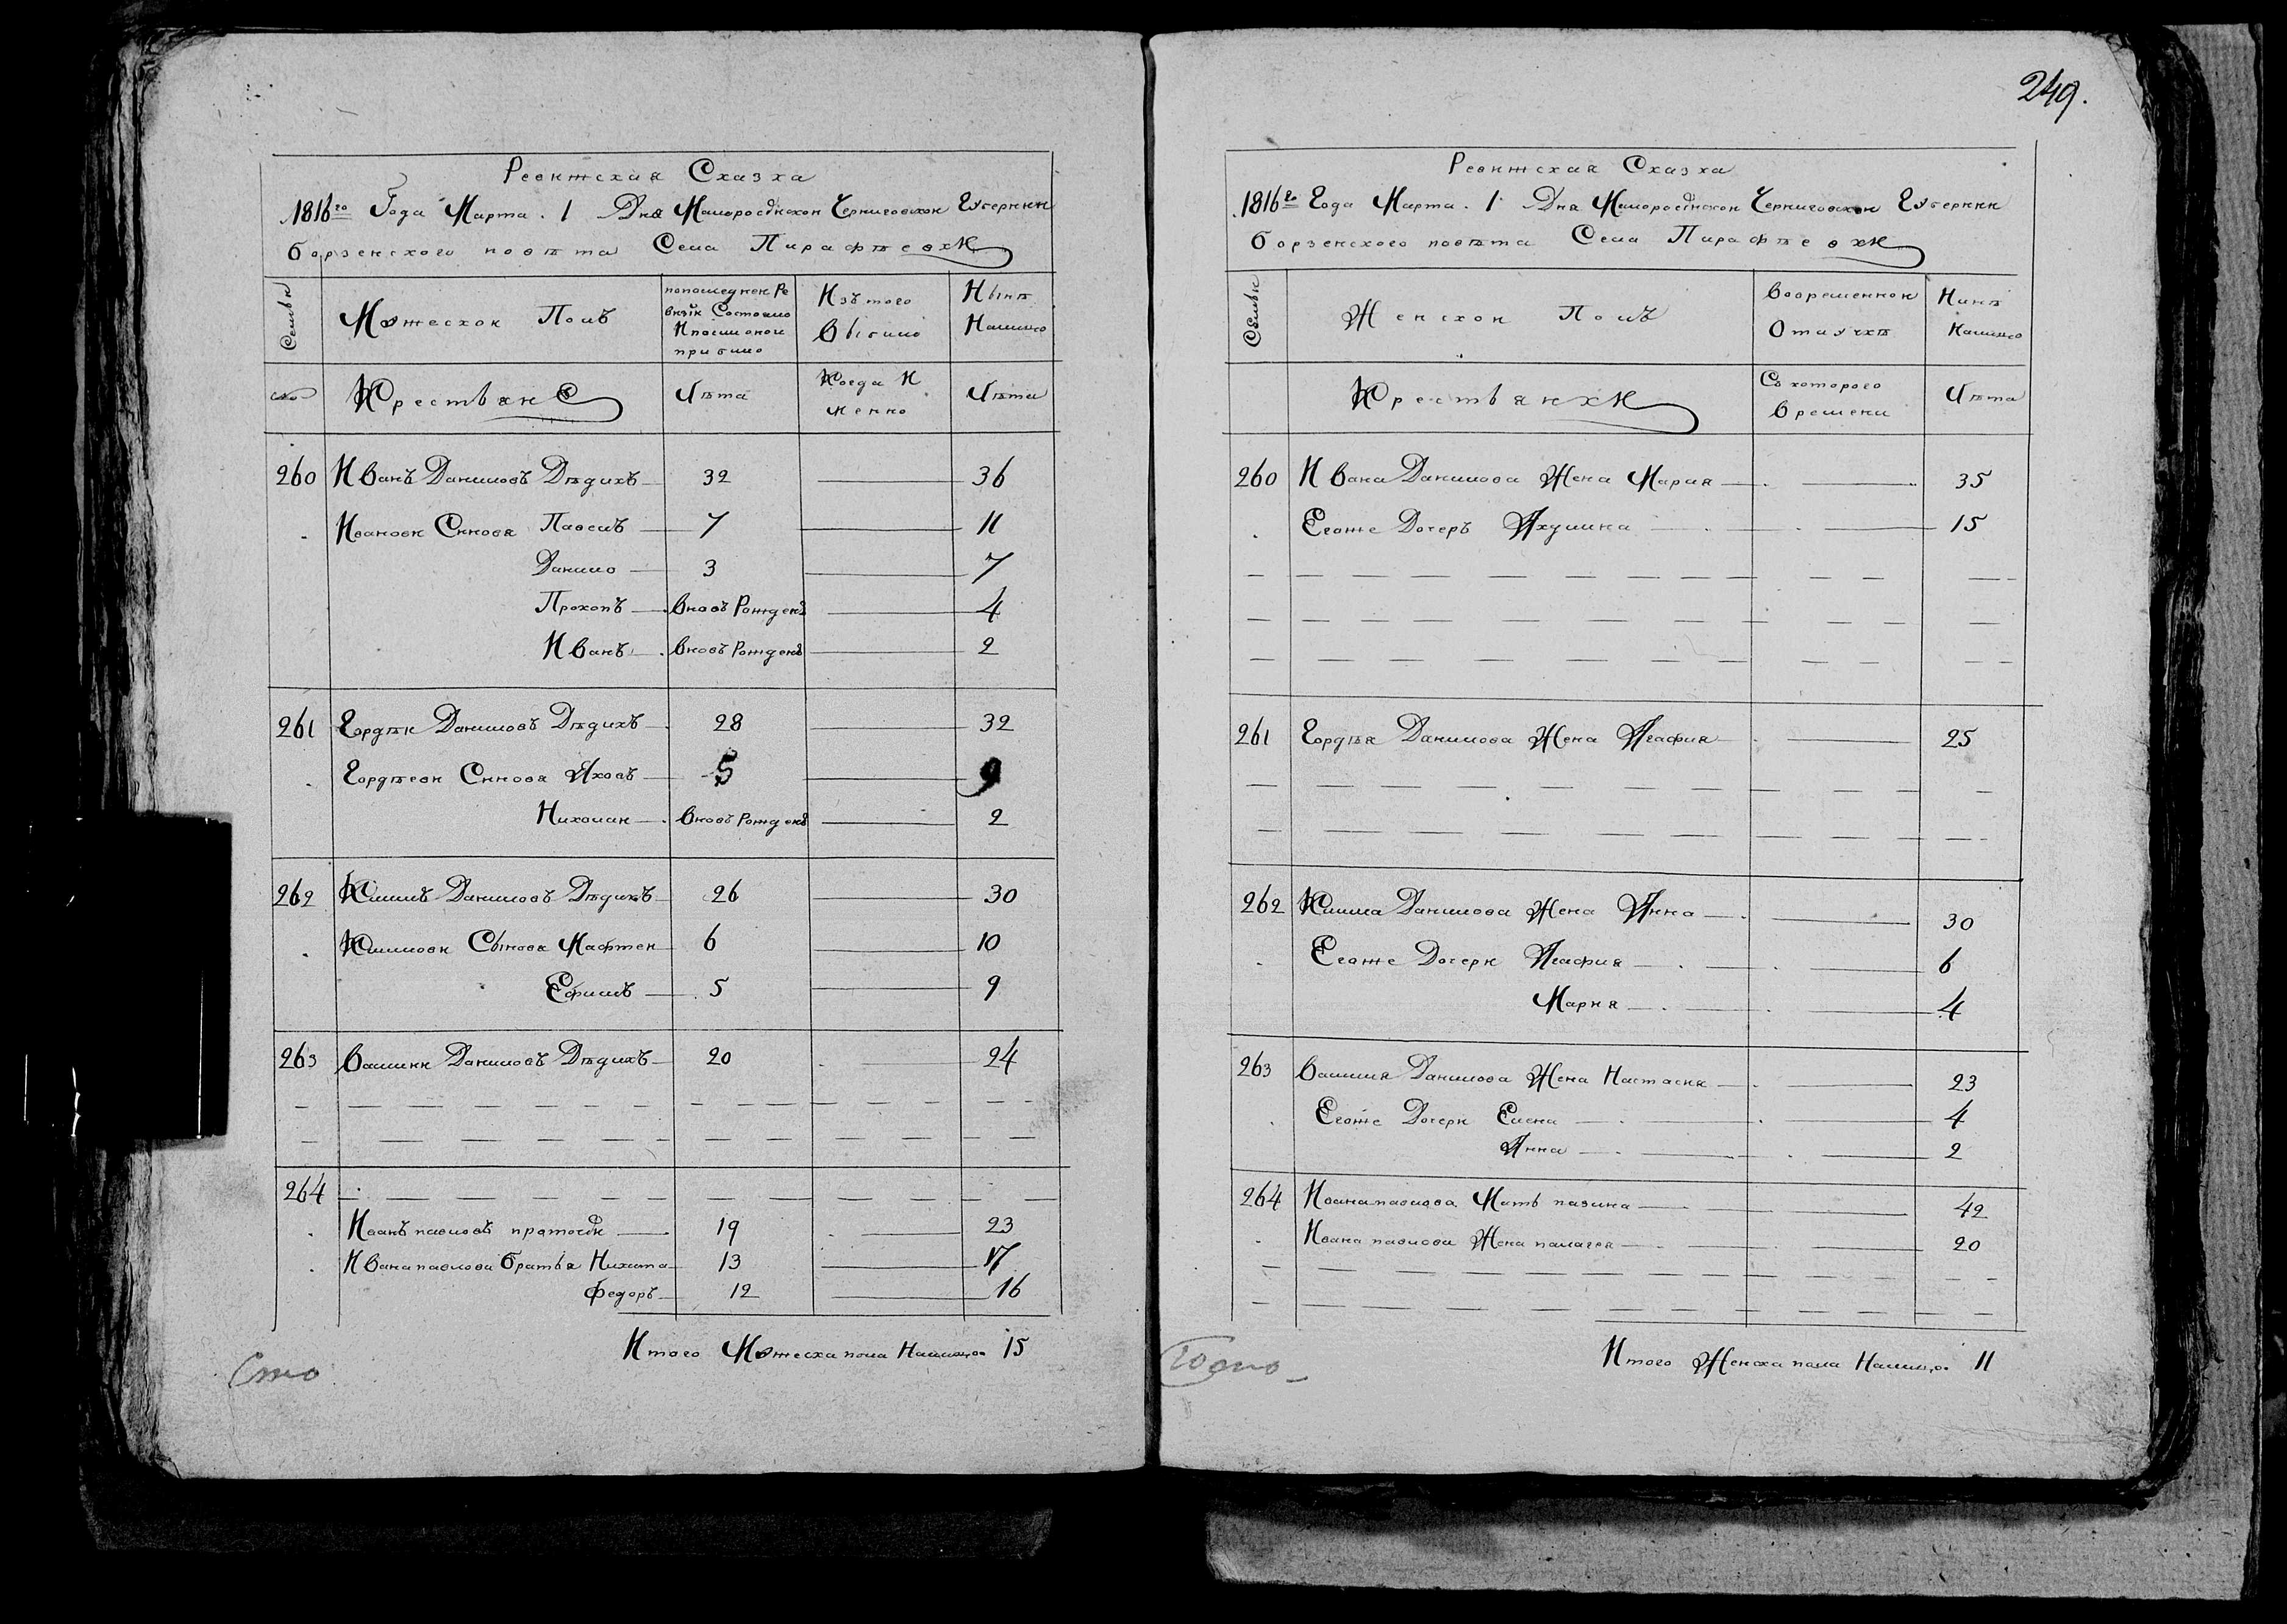 249.
Ревижская Сказка
1816го Года Марта 1 Дня Малоросийской Черниговской Губернии
борзенского повѣта Села Парафѣевки
Семьи
Мужеской Полъ
попоследней Ре
визіи Состояло
Ипослѣ оной
прибило
Изъ того
Выбило
Нынѣ
Налицо
Крестьяне
Лѣта
Когда И
менно
Лѣта
260 Иванъ Даниловъ Дѣдикъ 32 36
Ивановы Синовя Павелъ 7 11
Данило 3 7
Прокопъ вновъ Рожденъ 4
Иванъ вновъ Рожденъ 2
261 Гордѣй Даниловъ Дѣдикъ 28 32
Гордѣеви Синовя Яковъ 5 9
Николай вновъ Рожденъ 2
262 Климъ Даниловъ Дѣдикъ 26 30
Климови Сынова Мафтей 6 10
Ефимъ 5 9
263 Василий Даниловъ Дѣдикъ 20 24
264
Иванъ павловъ 19 23
Ивана павлова братья Никита 13 17
федоръ 12 16
Итого Мужеска пола Налицо 15
Сто
Ревижская Сказка
1816го Года Марта 1 Дня Малоросийской Черниговской Губернии
борзенского повѣта Села Парафѣевки
Семьи
Женской Полъ
Вовременной
Отлучкѣ
Нинѣ
Налицо
Крестьянки
Съ которого
Времени
Лѣта
260 Ивана Данилова Жена Мария 35
Егоже Дочеръ Акулина 15
261 Гордѣя Данилова Жена Агафия 25
262 Клима Данилова Жена Анна 30
Егоже Дочери Агафия 6
Мария 4
263 Василия Данилова Жена Настасия 23
Егоже Дочери Елена 4
Анна 2
264 Ивана павлова Мать 42
Ивана павлова Жена палагея 20
Итого Женска пола Налицо 11